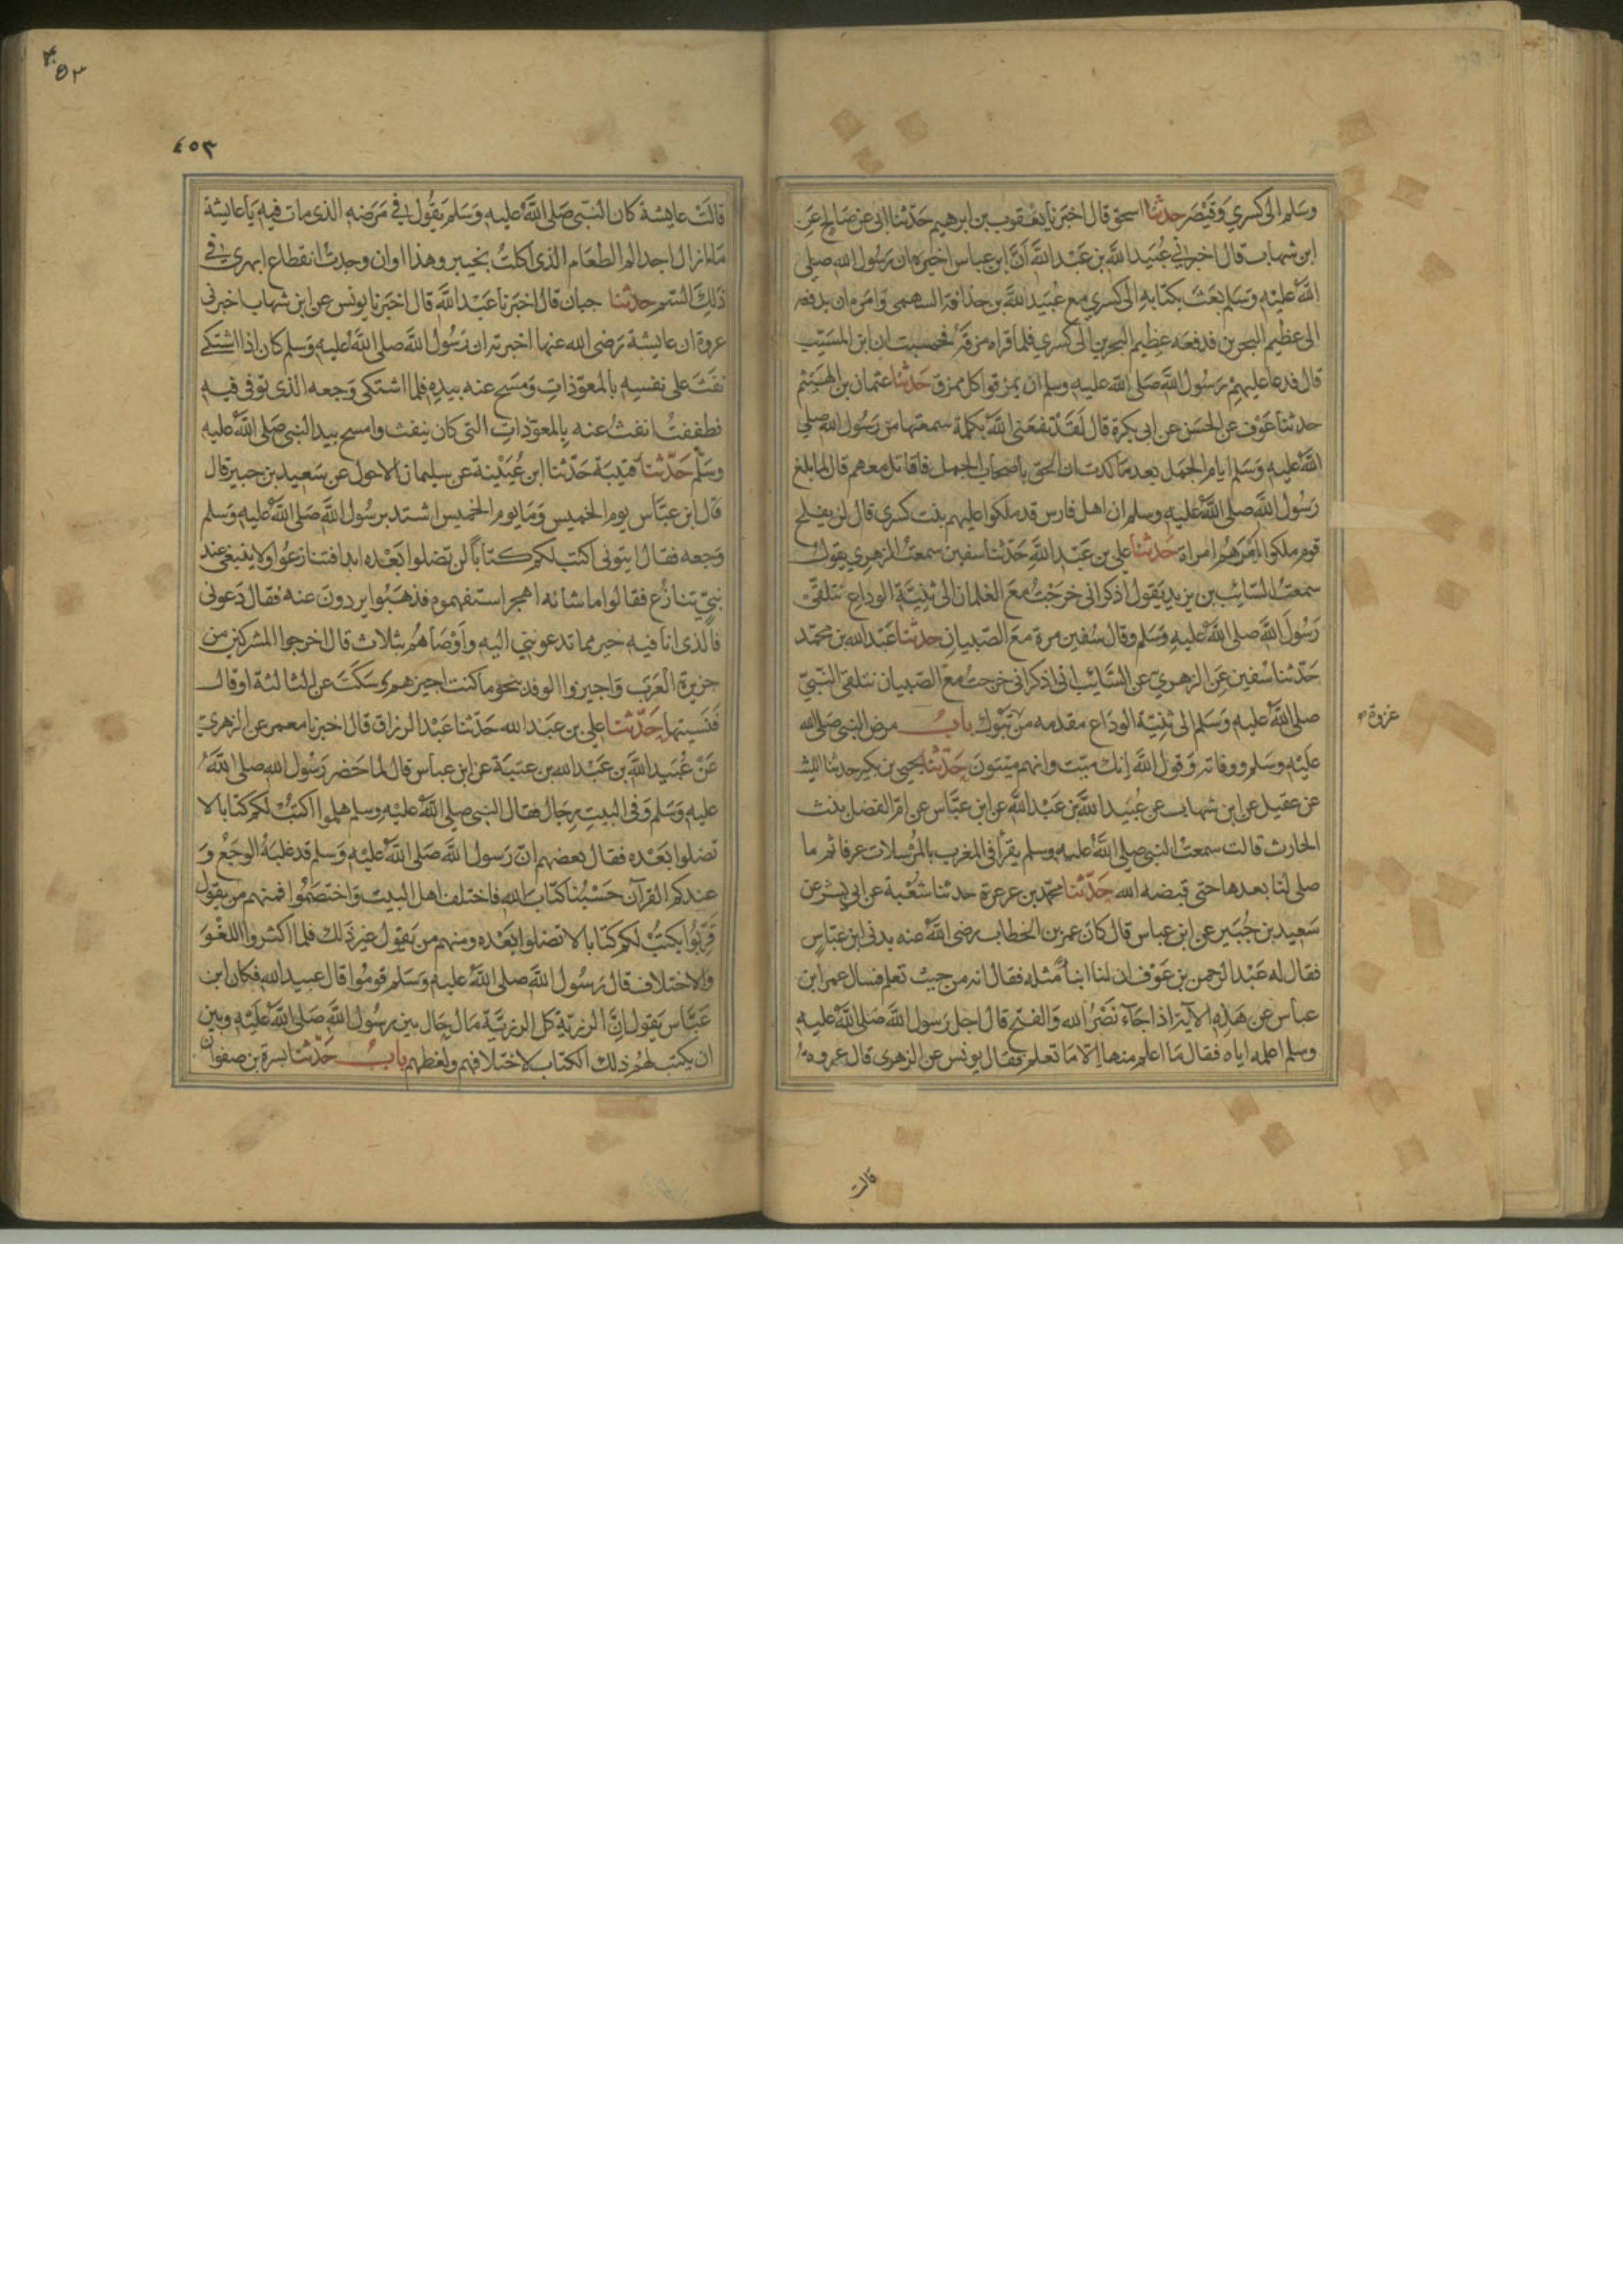 وسلم الى كسري وقيصر حدثنا اسحق قال اخبرنا يعقوب بن ابرهيم حدثنا ابى عن صالح عن
ابن شهاب قال اخبرني عبيد الله بن عبد الله ان ابن عباس اخبره ان رسول الله صلى
الله عليه وسلم بعث بكتابه الى كسري مع عبيد الله بن حذافة السهمى وامره ان يدفعه
الى عظيم البحرين فدفعه عظيم البحرين الى كسري فلما قراه مزقه فحسبت ان ابن المسيب
قال فدعا عليهم رسول الله صلى الله عليه وسلم ان يمزقوا كل ممزق حدثنا عثمان بن الهيثم
حدثنا عوف عن الحسن عن ابى بكرة قال لقد نفعنى الله بكلمة سمعتها من رسول الله صلى
الله عليه وسلم ايام الجمل بعد ما كدت ان الحق باصحاب الجمل فاقاتل معهم قال لما بلغ
رسول الله صلى الله عليه وسلم ان اهل فارس قد ملكوا عليهم بنت كسري قال لن يفلح
قوم ملكوا امرهم امراة حدثنا علي بن عبد الله حدثنا سفين سمعت الزهري يقول
سمعت السائب بن يزيد يقول اذكر انى خرجت مع الغلمان الى ثنية الوداع نتلقى
رسول الله صلى الله عليه وسلم وقال سفين مرة مع الصبيان حدثنا عبد الله بن محمد
حدثنا سفين عن الزهري عن السائب انى اذكر انى خرجت مع الصبيان نتلقى النبي
صلى الله عليه وسلم الى ثنية الوداع مقدمه من تبوك باب مرض النبى صلى الله
غزوة
عليه وسلم ووفاته وقول الله انك ميت وانهم ميتون حدثنا يحيى بن بكير حدثنا الليث
عن عقيل عن ابن شهاب عن عبيد الله بن عبد الله عن ابن عباس عن ام الفضل بنت
الحارث قالت سمعت النبى صلى الله عليه وسلم يقرأ فى المغرب بالمرسلات عرفا ثم ما
صلى لنا بعدها حتى قبضه الله حدثنا محمد بن عرعرة حدثنا شعبة عن ابي بشر عن
سعيد بن جبير عن ابن عباس قال كان عمر بن الخطاب رضى الله عنه يدنى ابن عباس
فقال له عبد الرحمن بن عوف ان لنا ابناء مثله فقال انه من حيث تعلم فسال عمر ابن
عباس عن هذه الآية اذا جآء نصر الله والفتح قال اجل رسول الله صلى الله عليه
وسلم اعلمه اياه فقال ما اعلم منها الا ما تعلم فقال يونس عن الزهرى قال عروة
قالت
٤٥٣
قالت عايشة كان النبى صلى الله عليه وسلم يقول في مرضه الذى مات فيه يا عايشة
ما ازال اجد الم الطعام الذى اكلت بخيبر وهذا اوان وجدت انقطاع ابهري فى
ذلك السم حدثنا حبان قال اخبرنا عبد الله قال اخبرنا يونس عن ابن شهاب اخبرنى
عروة ان عايشة رضى الله عنها اخبرته ان رسول الله صلى الله عليه وسلم كان اذا اشتكى
نفث على نفسه بالمعوذات ومسح عنه بيده فلما اشتكى وجعه الذى توفى فيه
فطفقت انفث عنه بالمعوذات التى كان ينفث وامسح بيد النبى صلى الله عليه
وسلم حدثنا قتيبة حدثنا ابن عيينة عن سليمان الاحول عن سعيد بن جبير قال
قال ابن عباس يوم الخميس وما يوم الخميس اشتد برسول الله صلى الله عليه وسلم
وجعه فقال ايتونى اكتب لكم كتابا لن تضلوا بعده ابدا فتنازعوا ولا ينبغى عند
نبي تنازع فقالوا ما شانه اهجر استفهموه فذهبوا يردون عنه فقال دعونى
فالذى انا فيه خير مما تدعونني اليه واوصاهم بثلاث قال اخرجوا المشركين من
جزيرة العرب واجيزوا الوفد بنحو ما كنت اجيزهم وسكت عن الثالثة او قال
فنسيتها حدثنا علي بن عبد الله حدثنا عبد الرزاق قال اخبرنا معمر عن الزهري
عن عبيد الله بن عبد الله بن عتبة عن ابن عباس قال لما حضر رسول الله صلى الله
عليه وسلم وفى البيت رجال فقال النبى صلى الله عليه وسلم هلموا اكتب لكم كتابا لا
تضلوا بعده فقال بعضهم ان رسول الله صلى الله عليه وسلم قد غلبه الوجع و
عندكم القرآن حسبنا كتاب الله فاختلف اهل البيت واختصموا فمنهم من يقول
قربوا يكتب لكم كتابا لا تضلوا بعده ومنهم من يقول غير ذلك فلما اكثروا اللغو
والاختلاف قال رسول الله صلى الله عليه وسلم قوموا قال عبيد الله فكان ابن
عباس يقول ان الرزية كل الرزية ما حال بين رسول الله صلى الله عليه وبين
ان يكتب لهم ذلك الكتاب لاختلافهم ولغطهم باب حدثنا يسرة بن صفوان